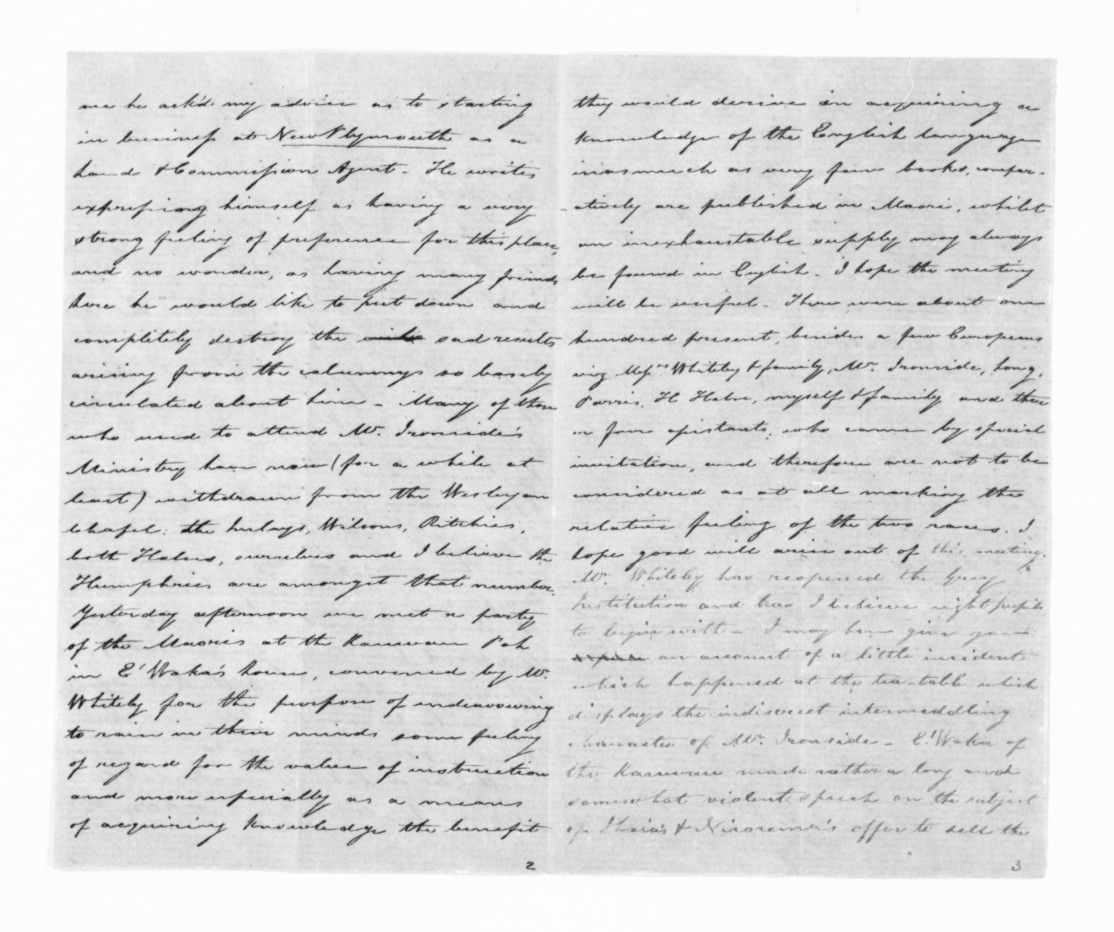 me he ask'd my advice as to starting
in business at New Plymouth as a
Land & Commission Agent - He writes
expressing himself as having a very
strong feeling of preference for this place,
and no wonder, as having many friends
here he would like to put down and
completely destroy the sad results
arising from the calumnys so basely
circulated about him - Many of those
who used to attend Mr. Ironside's
Ministry have now (for a while at
least) withdrawn from the Wesleyan
Chapel: the Wilsons, Ritchies,
both Halses, ourselves and I believe the
Humphries are amongst that number.
Yesterday afternoon we met a party
of the Maoris at the Kawau Pah
in E'Waka's house, convened by Mr.
Whiteley for the purpose of endeavouring
to raise in their minds some feeling
of regard for the value of instruction
and more especially as a means
of acquiring knowledge the benefit
2
they would derive in acquiring a
knowledge of the English language
inasmuch as very few books, compar-
-atively are published in Maori, whilst
an inexhaustable supply may always
be found in English. I hope the meeting
will be useful. There were about one
hundred present, besides a few Europeans
viz. Whiteley & family, Mr. Ironside, Long,
Parris, H Halse, myself & family and three
or four assistants, who came by special
invitation, and therefore are not to be
considered as at all marking the
relative feeling of the two races. I
hope good will arise out of this meeting.
Mr. Whiteley has reopened the Grey
Institution and has I believe eight pupils
to begin with - I may here give you
an account of a little incident
which happened at the tea-table which
displays the indiscreet intermeddling
character of Mr. Ironside - E'Waka of
the Kawau made rather a long and
somewhat violent speech on the subject
of Ihaia's & Nikorima's offer to sell the
3